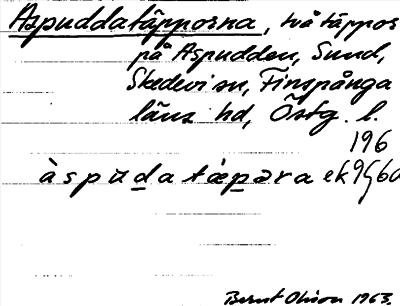 Aspuddatäpporna, två täppor
på Aspudden, Sund,
Skedevi sn, Finspånga
läns hd, Östg. l.
196
àspuda tæpəra ek 9/60
Bernt Olsson 1963.